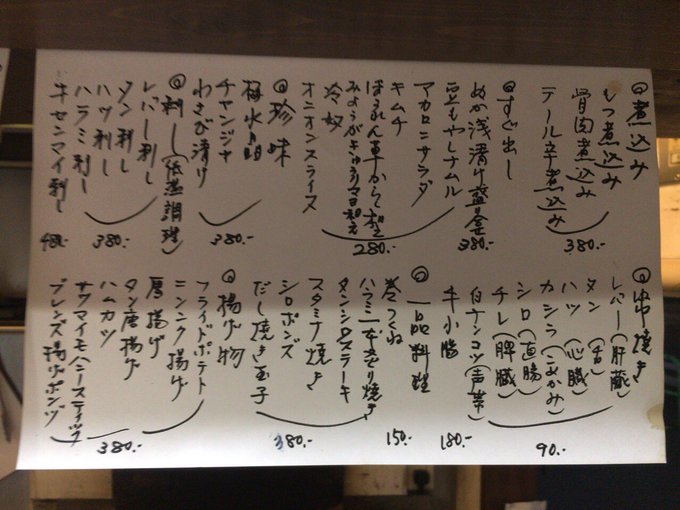 ◎煮込み
もつ煮込み
骨肉煮込み
テール辛煮込み
380.-
◎すぐ出し
ぬか浅漬け盛合せ
380.-
豆もやしナムル
マカロニサラダ
キムチ
ほうれん草からし和え
みょうがきゅうりマヨ和え
冷奴
オニオンスライス
280.-
◎珍味
梅水晶
チャンジャ
わさび漬け
380.-
◎刺し(低温調理)
レバー刺し
タン刺し
ハツ刺し
ハラミ刺し
380.-
牛センマイ刺し
480.-
◎串焼き
レバー(肝蔵)
タン(舌)
ハツ(心臓)
カシラ(こめかみ)
シロ(直腸)
チレ(脾臓)
白ナンコツ(声帯)
90.-
牛小腸
180.-
巻つくね
150.-
◎一品料理
ハラミ一本炙り焼き
タンシロステーキ
スタミナ焼き
シロポンズ
だし焼き玉子
380.-
◎揚げ物
フライドポテト
ニンニク揚げ
唐揚げ
タン唐揚げ
ハムカツ
サツマイモハニースティック
ブレンズ揚げポンヅ
380.-